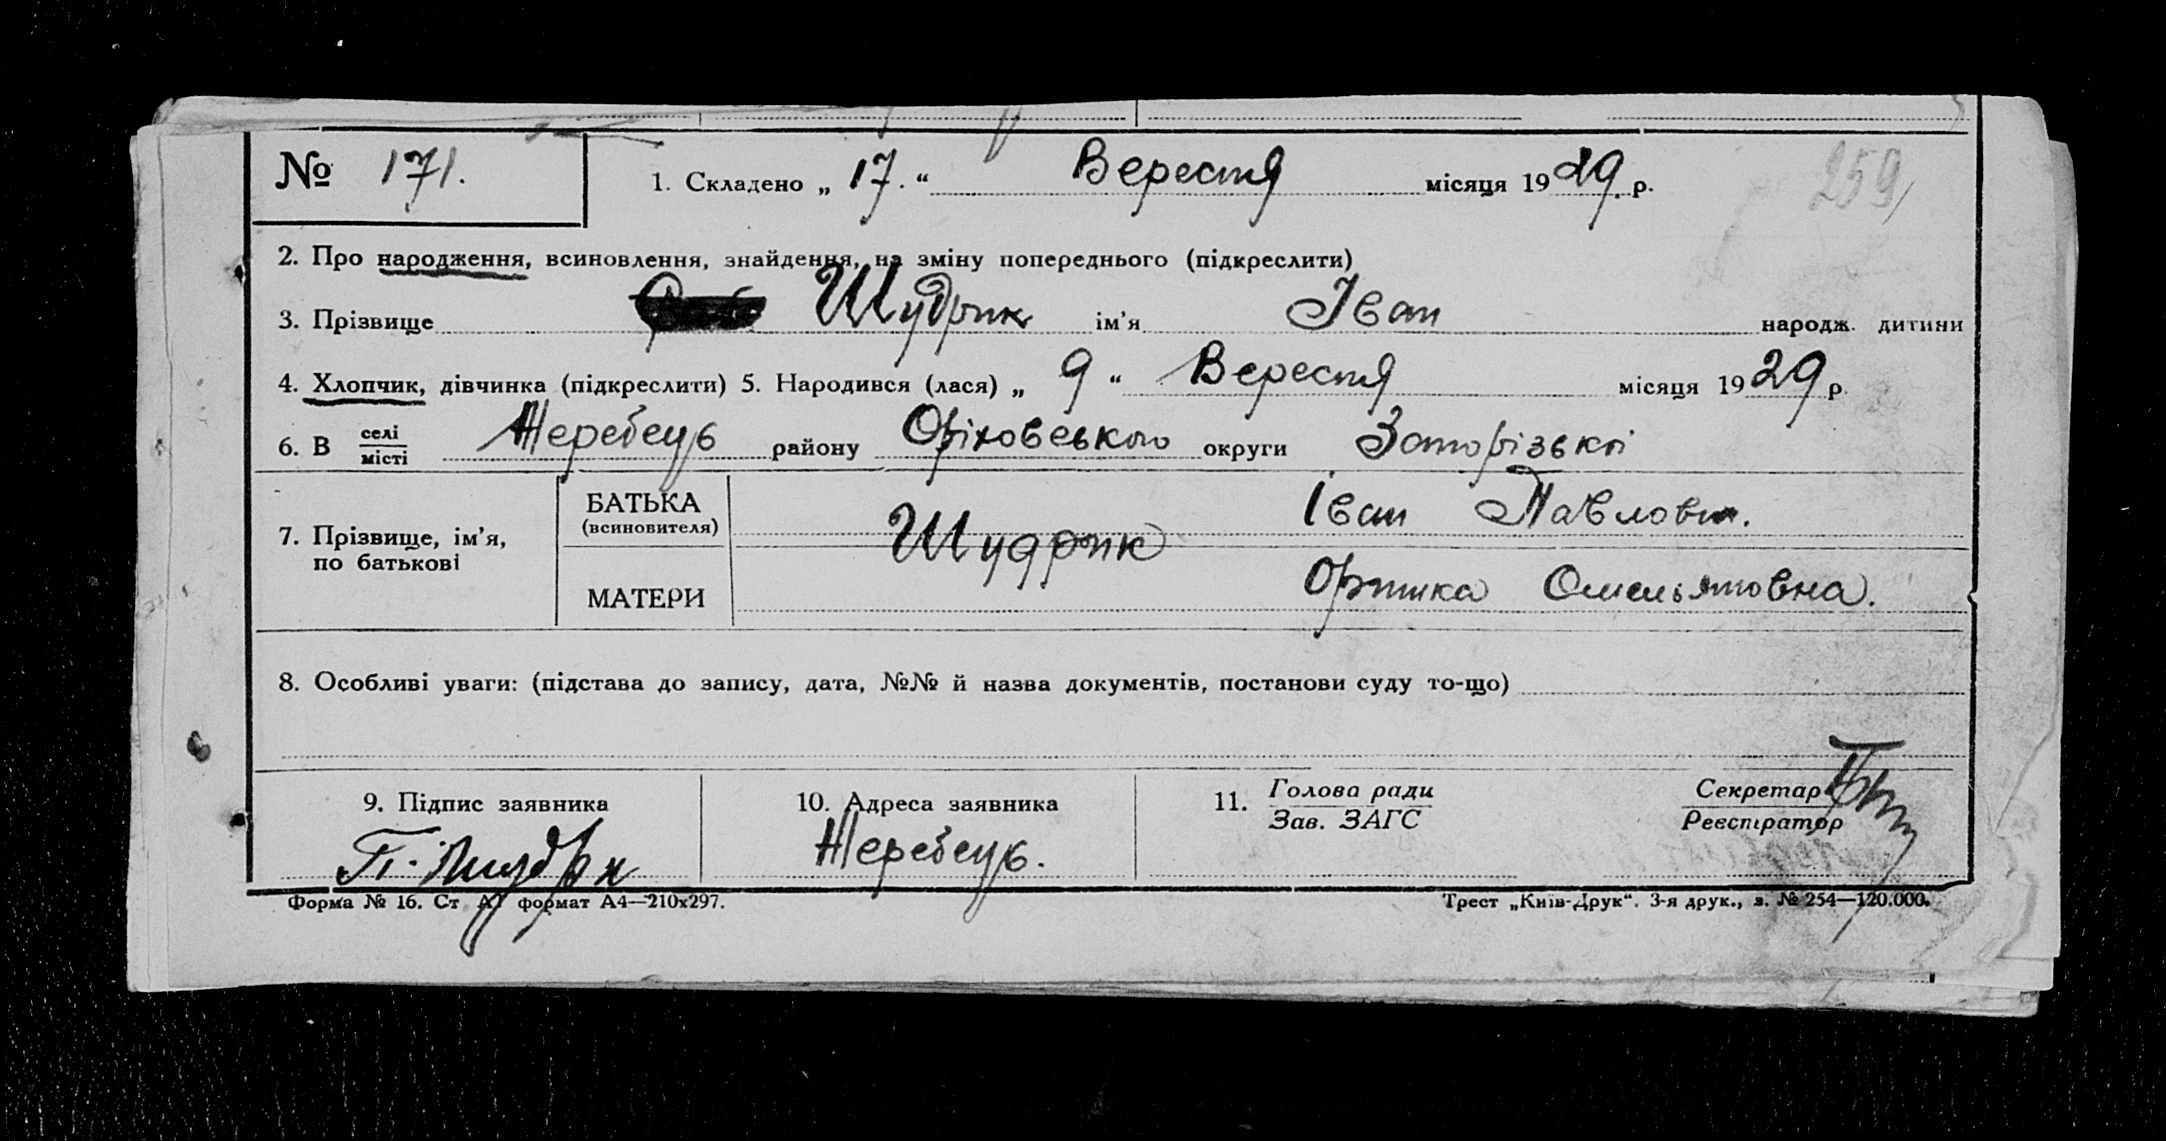 № 171. 1. Складено „ 17. “ Вересня місяця 1929. р. 259
2. Про народження, всиновлення, знайдення, на зміну попереднього (підкреслити)
3. Прізвище Шудрик ім'я Іван народж. дитини
4. Хлопчик, дівчинка (підкреслити) 5. Народився (лася) „ 9 “ Вересня місяця 1929 р.
6. В селі місті Жеребець району Оріховського округи Запорізької
7. Прізвище, ім'я, по батькові
БАТЬКА (всиновителя) Шудрик Іван Павлович.
МАТЕРИ Оришка Омельяновна.
8. Особливі уваги: (підстава до запису, дата, №№ й назва документів, постанови суду то-що)
9. Підпис заявника 10. Адреса заявника 11. Голова ради Секретар
Зав. ЗАГС Реєстратор
П. Шудрик Жеребець.
Форма № 16. Ст. А1 формат А4—210х297. Трест „Київ-Друк“. 3-я друк., з. № 254—120.000.